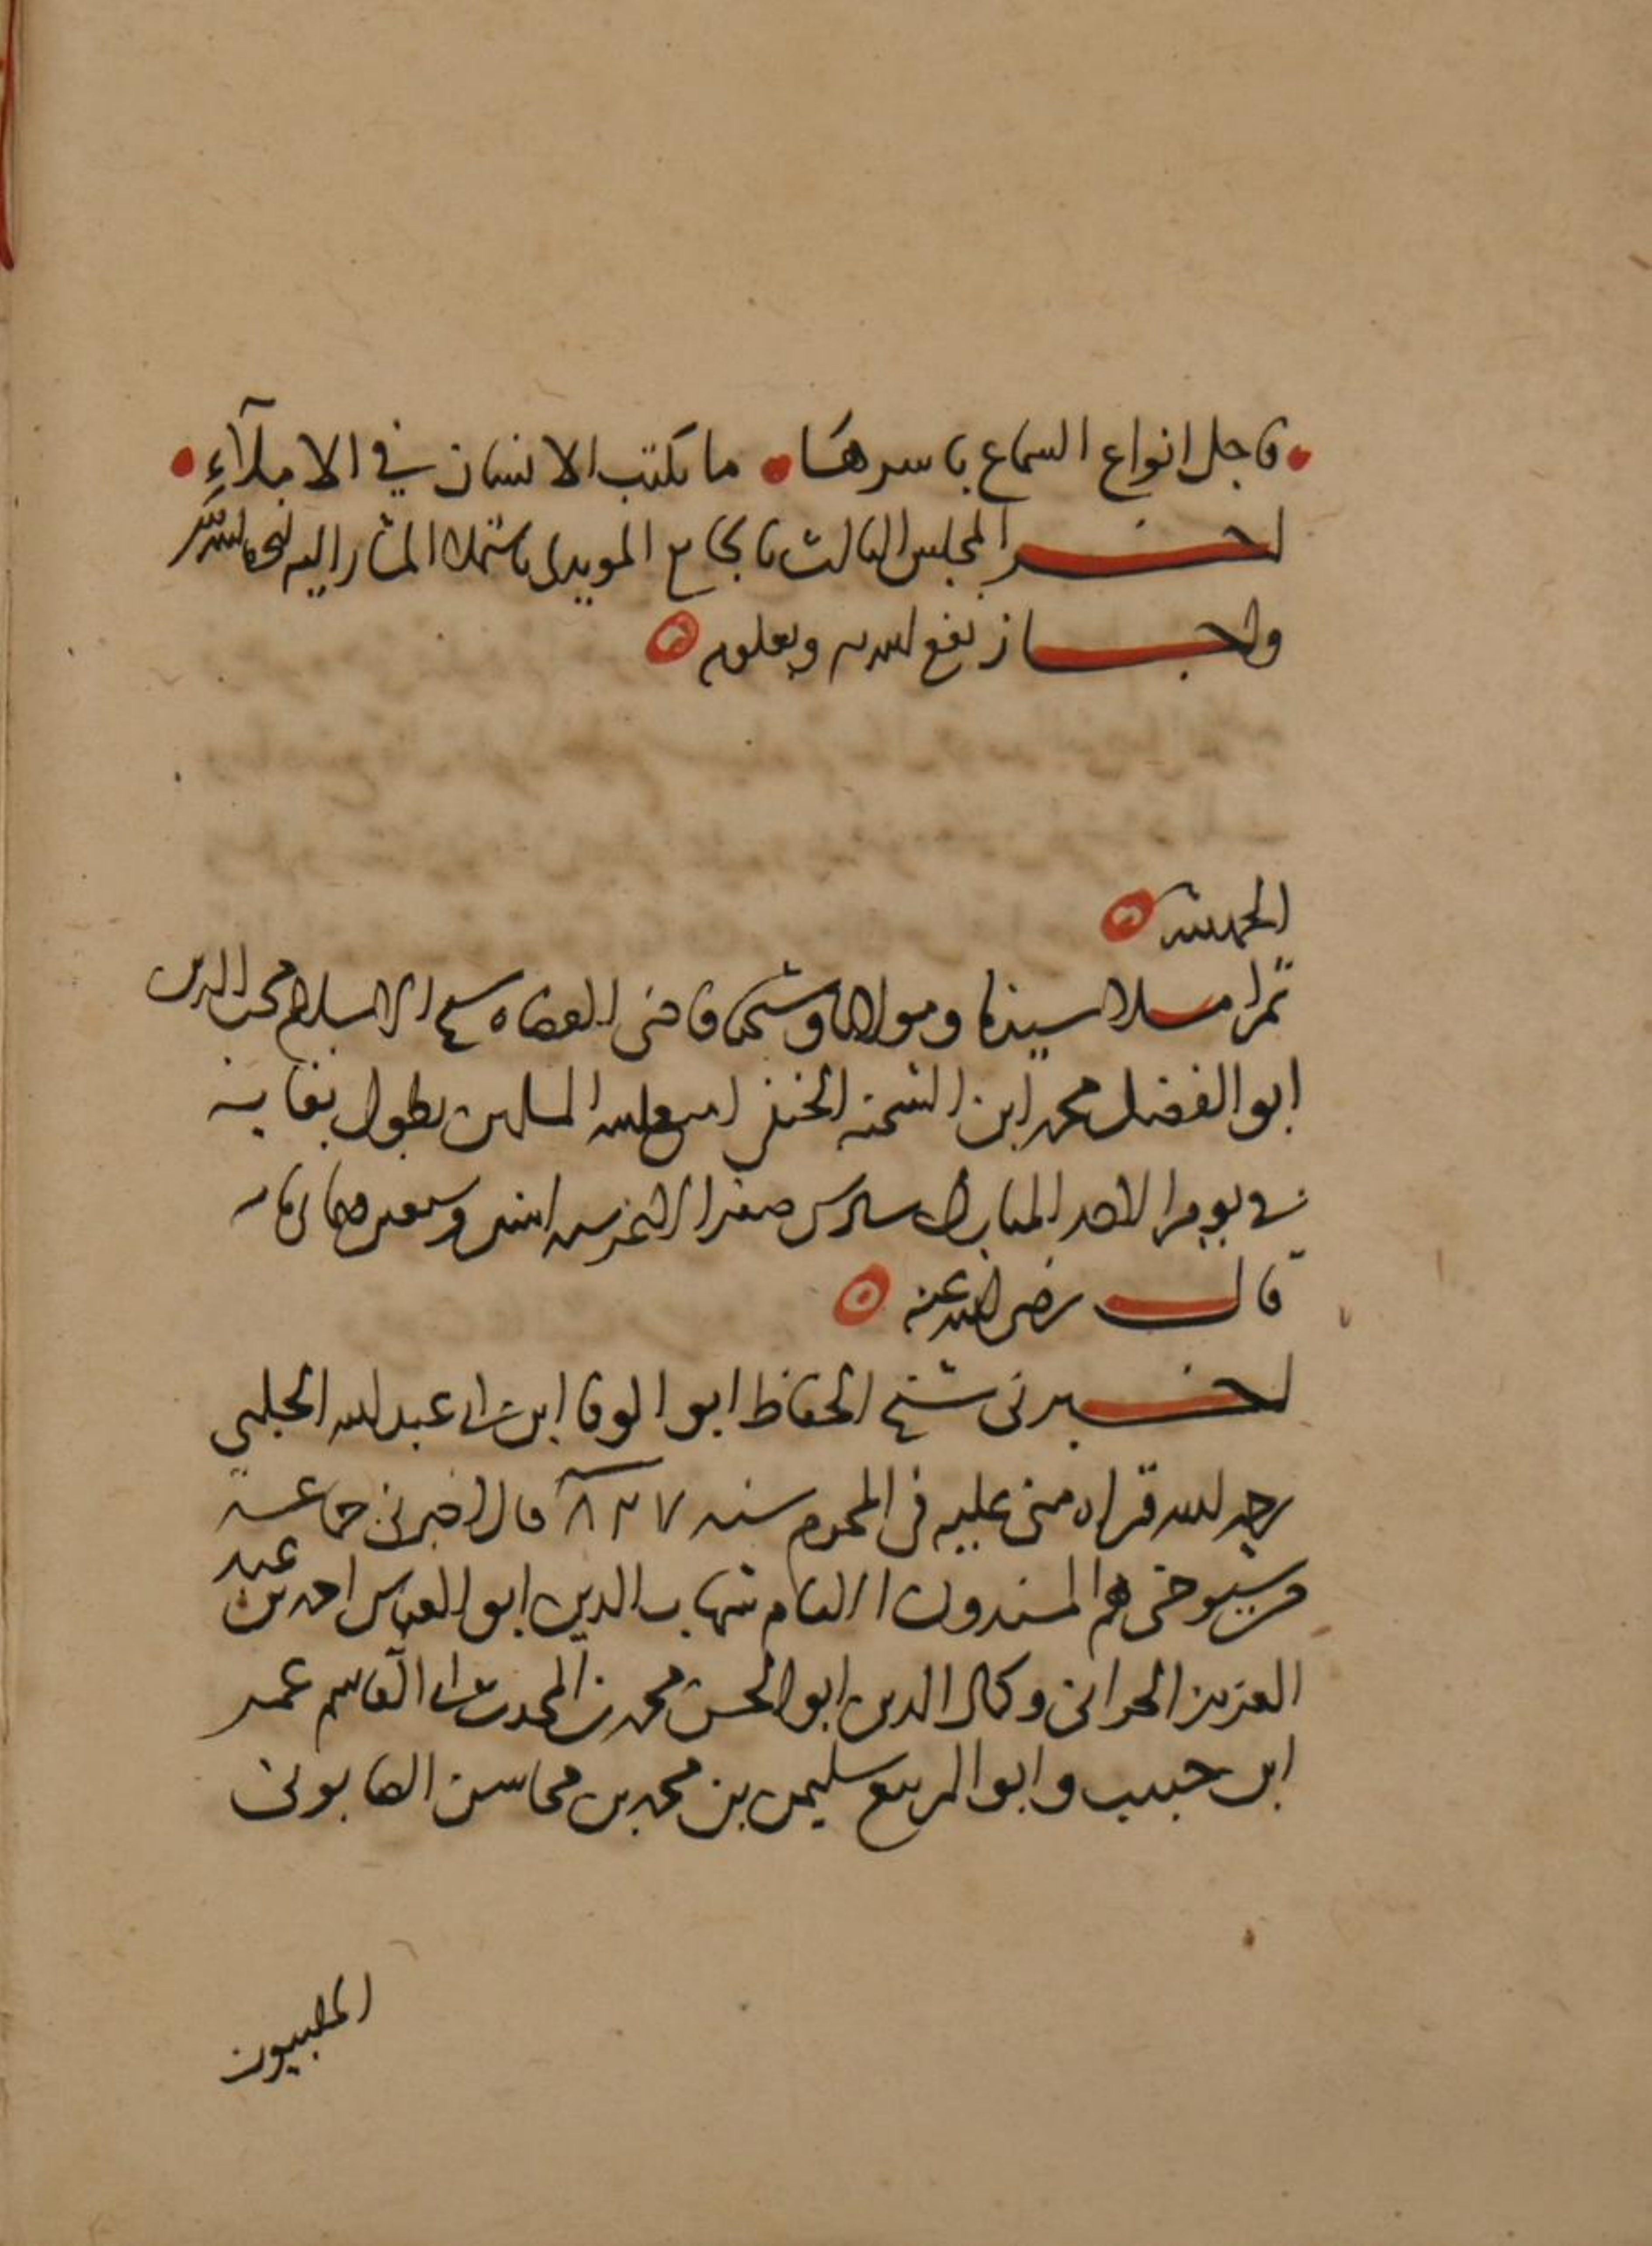 فاجل انواع السماع باسرها ما يكتب الانسان في الاملآءِ
اخر المجلس الثالث بالجامع المويدي باستملا المشار اليه
واجاز نفع الله به وبعلومه
الحمد لله
ثم املا سيدنا ومولانا وشيخنا قاضي القضاه شيخ الاسلام محب الدين
ابو الفضل محمد ابن الشحنه الحنفي امتع الله المسلمين بطول بقايه
في يوم الاحد المبارك سادس صفر الاغر سنه اثنين وسبعين وثمانمايه
قال رضي الله عنه
اخبرني شيخ الحفاظ ابو الوفا ابن ابي عبد الله الحلبي
رحمه الله قراه مني عليه في المحرم سنه ٨٢٧ قال اخبرني جماعة
من شيوخي هم المسندون الامام شهاب الدين ابو العباس احمد بن عبد
العزيز الحراني وكمال الدين ابو الحسن محمد بن المحدث ابي القاسم عمر
ابن حبيب وابو الربيع سليمن بن محمد بن محاسن الصابوني
الحلبيون